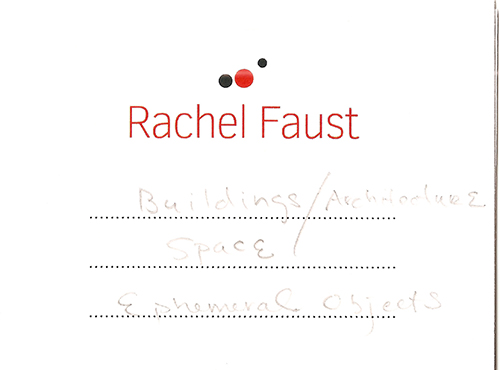 Rachel Faust
Buildings/Architecture
Space
Ephemeral Objects